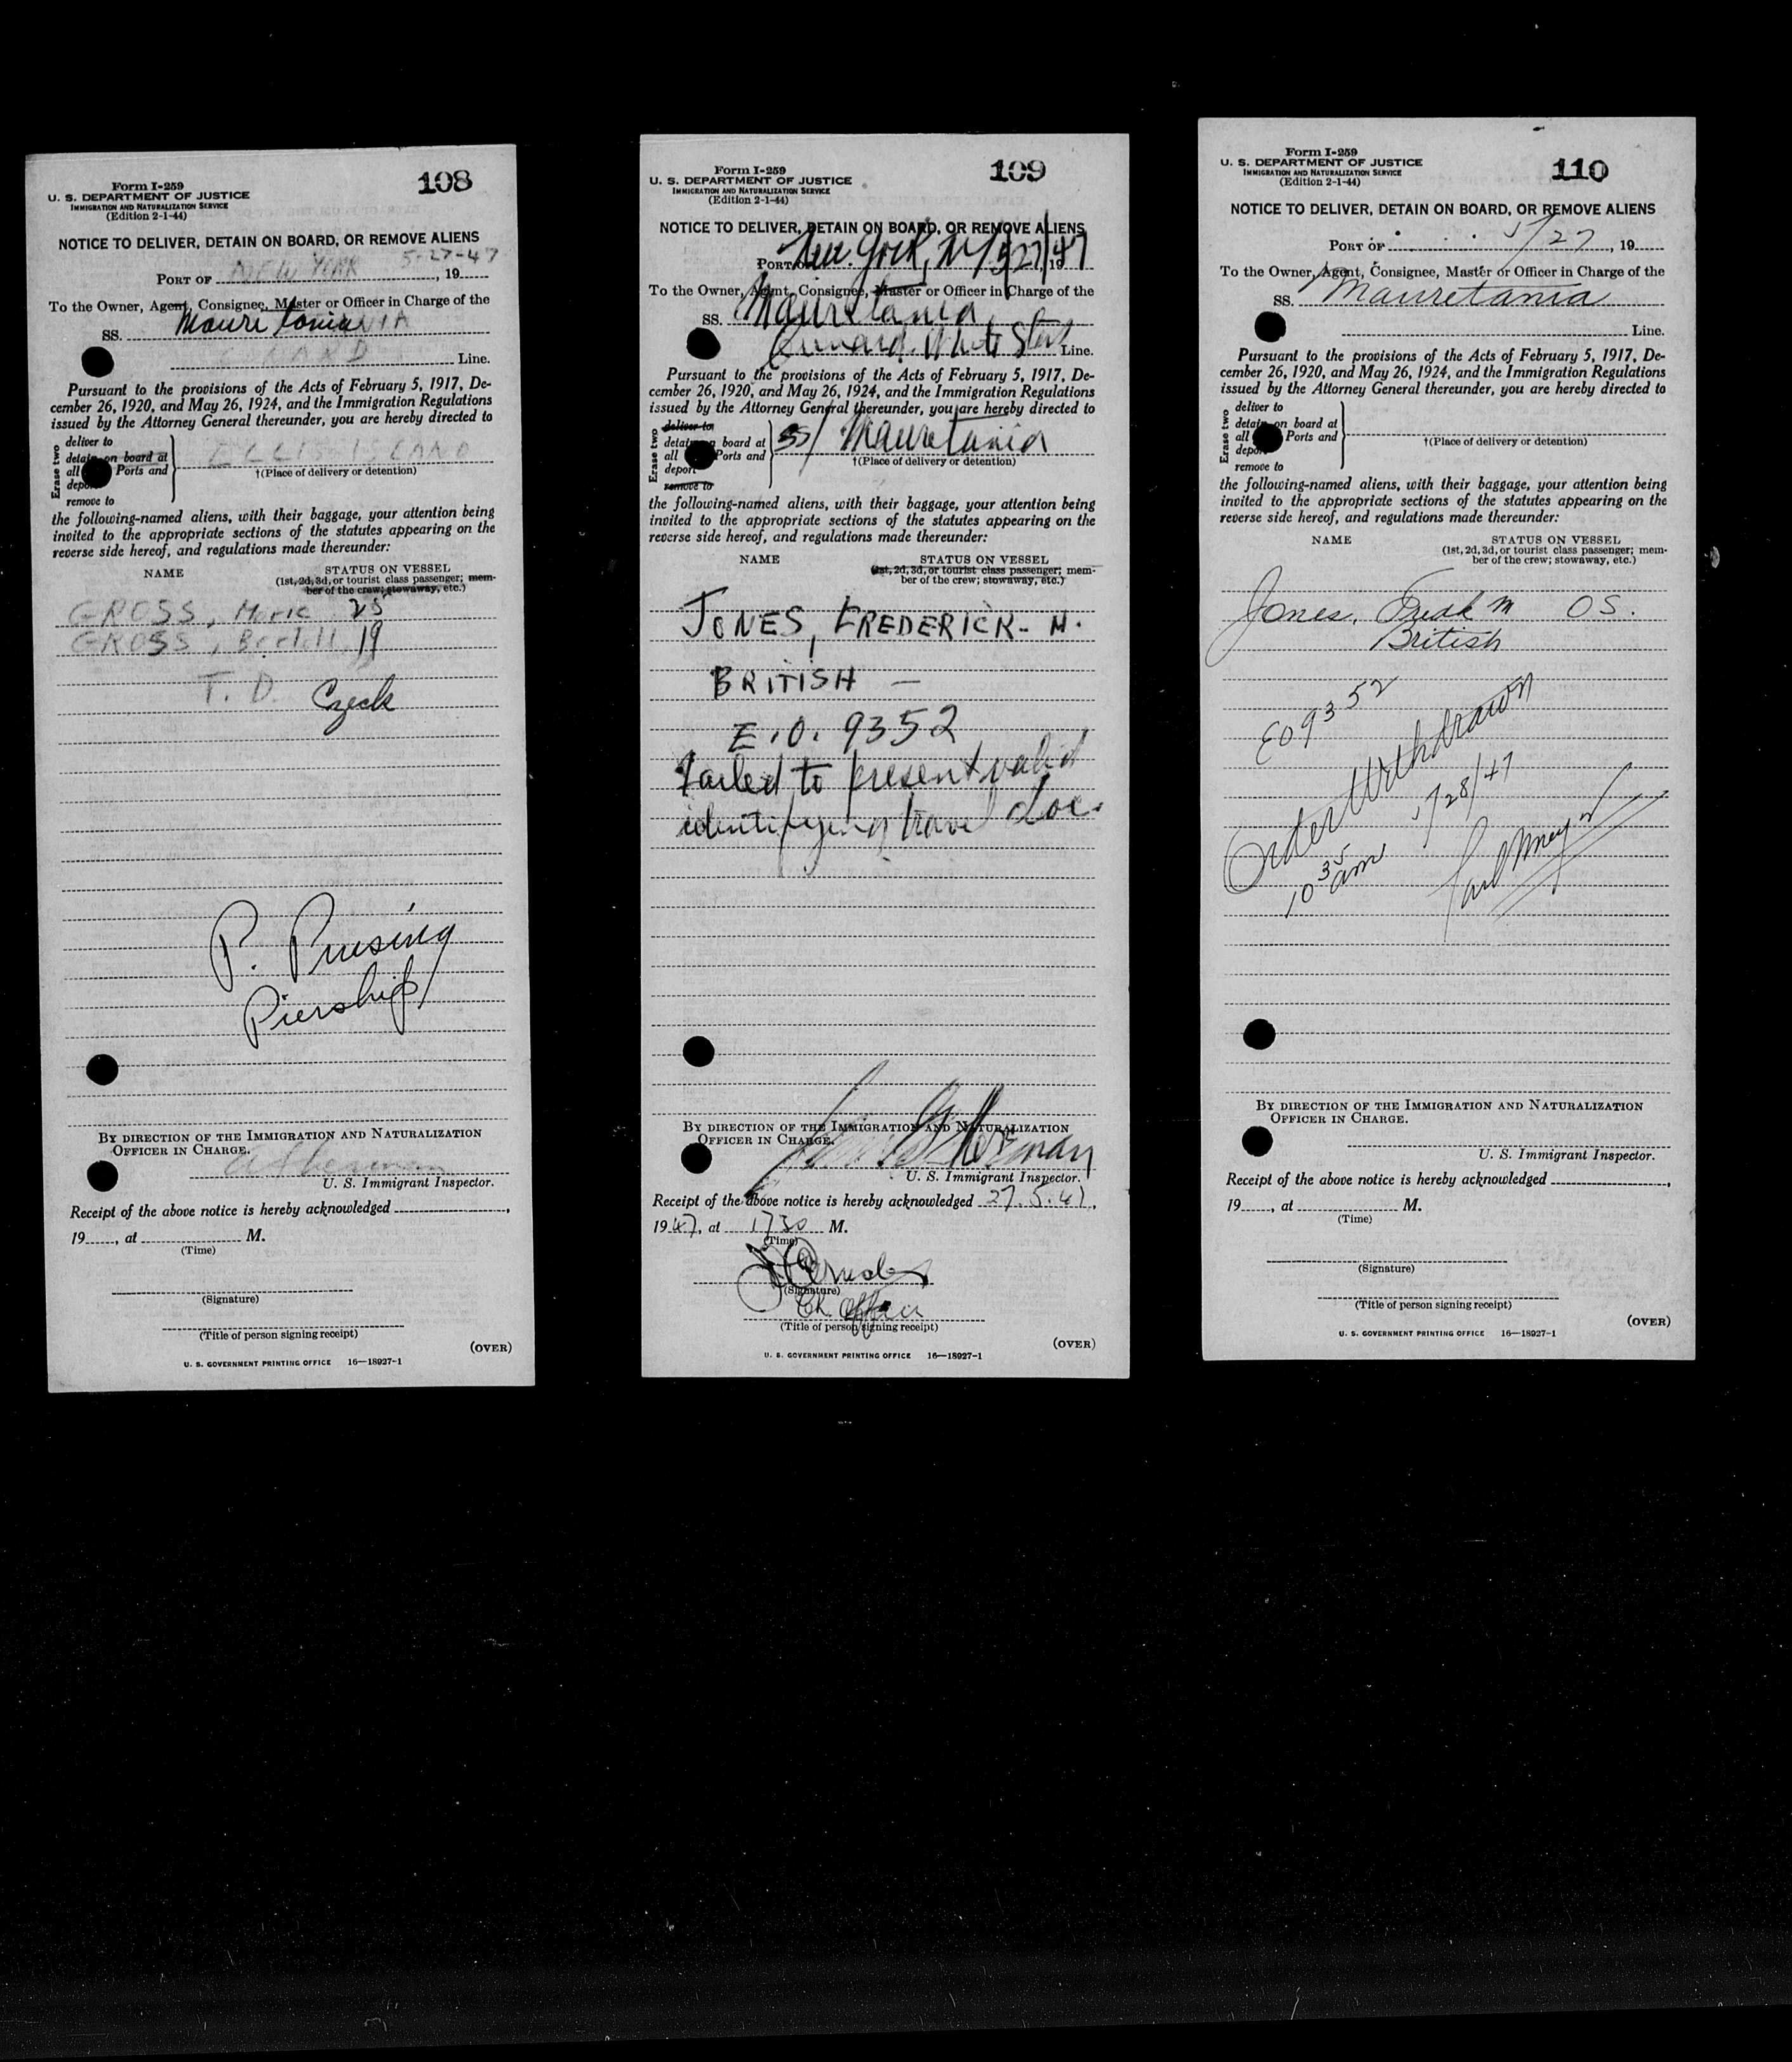 108
Form I-259
U. S. DEPARTMENT OF JUSTICE
IMMIGRATION AND NATURALIZATION SERVICE
(Edition 2-1-44)
NOTICE TO DELIVER, DETAIN ON BOARD, OR REMOVE ALIENS
5-27-47
PORT OF NEW YORK, 19
To the Owner, Agent, Consignee, Master or Officer in Charge of the
SS. Mauritania
Line.
Pursuant to the provisions of the Acts of February 5, 1917, De-
cember 26, 1920, and May 26, 1924, and the Immigration Regulations
issued by the Attorney General thereunder, you are hereby directed to
Erase two
deliver to
detain on board at
all Ports and
deport
remove to
ELLIS ISLAND
†(Place of delivery or detention)
the following-named aliens, with their baggage, your attention being
invited to the appropriate sections of the statutes appearing on the
reverse side hereof, and regulations made thereunder:
NAME
STATUS ON VESSEL
(1st, 2d, 3d, or tourist class passenger; mem-
ber of the crew; stowaway, etc.)
GROSS, 25
GROSS, 19
T. D. Czech
P. Pruesing
Piership
BY DIRECTION OF THE IMMIGRATION AND NATURALIZATION
OFFICER IN CHARGE.
U. S. Immigrant Inspector.
Receipt of the above notice is hereby acknowledged ,
19 , at M.
(Time)
(Signature)
(Title of person signing receipt)
(OVER)
U. S. GOVERNMENT PRINTING OFFICE 16—18927-1
109
Form I-259
U. S. DEPARTMENT OF JUSTICE
IMMIGRATION AND NATURALIZATION SERVICE
(Edition 2-1-44)
NOTICE TO DELIVER, DETAIN ON BOARD, OR REMOVE ALIENS
PORT OF New York, N.Y. 5/27/1947
To the Owner, Agent, Consignee, Master or Officer in Charge of the
SS. Mauretania
Cunard White Star Line.
Pursuant to the provisions of the Acts of February 5, 1917, De-
cember 26, 1920, and May 26, 1924, and the Immigration Regulations
issued by the Attorney General thereunder, you are hereby directed to
Erase two
deliver to
detain on board at
all Ports and
deport
remove to
SS/ Mauretania
†(Place of delivery or detention)
the following-named aliens, with their baggage, your attention being
invited to the appropriate sections of the statutes appearing on the
reverse side hereof, and regulations made thereunder:
NAME
STATUS ON VESSEL
(1st, 2d, 3d, or tourist class passenger; mem-
ber of the crew; stowaway, etc.)
JONES, FREDERICK. M.
BRITISH —
E.O. 9352
Failed to present valid
identifying travel doc.
BY DIRECTION OF THE IMMIGRATION AND NATURALIZATION
OFFICER IN CHARGE.
U. S. Immigrant Inspector.
Receipt of the above notice is hereby acknowledged 27.5.47,
1947, at 1730 M.
(Time)
(Signature)
Ch. Officer
(Title of person signing receipt)
(OVER)
U. S. GOVERNMENT PRINTING OFFICE 16—18927-1
110
Form I-259
U. S. DEPARTMENT OF JUSTICE
IMMIGRATION AND NATURALIZATION SERVICE
(Edition 2-1-44)
NOTICE TO DELIVER, DETAIN ON BOARD, OR REMOVE ALIENS
PORT OF 5/27, 19
To the Owner, Agent, Consignee, Master or Officer in Charge of the
SS. Mauretania
Line.
Pursuant to the provisions of the Acts of February 5, 1917, De-
cember 26, 1920, and May 26, 1924, and the Immigration Regulations
issued by the Attorney General thereunder, you are hereby directed to
Erase two
deliver to
detain on board at
all Ports and
deport
remove to
†(Place of delivery or detention)
the following-named aliens, with their baggage, your attention being
invited to the appropriate sections of the statutes appearing on the
reverse side hereof, and regulations made thereunder:
NAME
STATUS ON VESSEL
(1st, 2d, 3d, or tourist class passenger; mem-
ber of the crew; stowaway, etc.)
Jones, Fredk M OS.
British
EO 9352
Order Withdrawn
10 35 am 5/28/47
BY DIRECTION OF THE IMMIGRATION AND NATURALIZATION
OFFICER IN CHARGE.
U. S. Immigrant Inspector.
Receipt of the above notice is hereby acknowledged ,
19 , at M.
(Time)
(Signature)
(Title of person signing receipt)
(OVER)
U. S. GOVERNMENT PRINTING OFFICE 16—18927-1